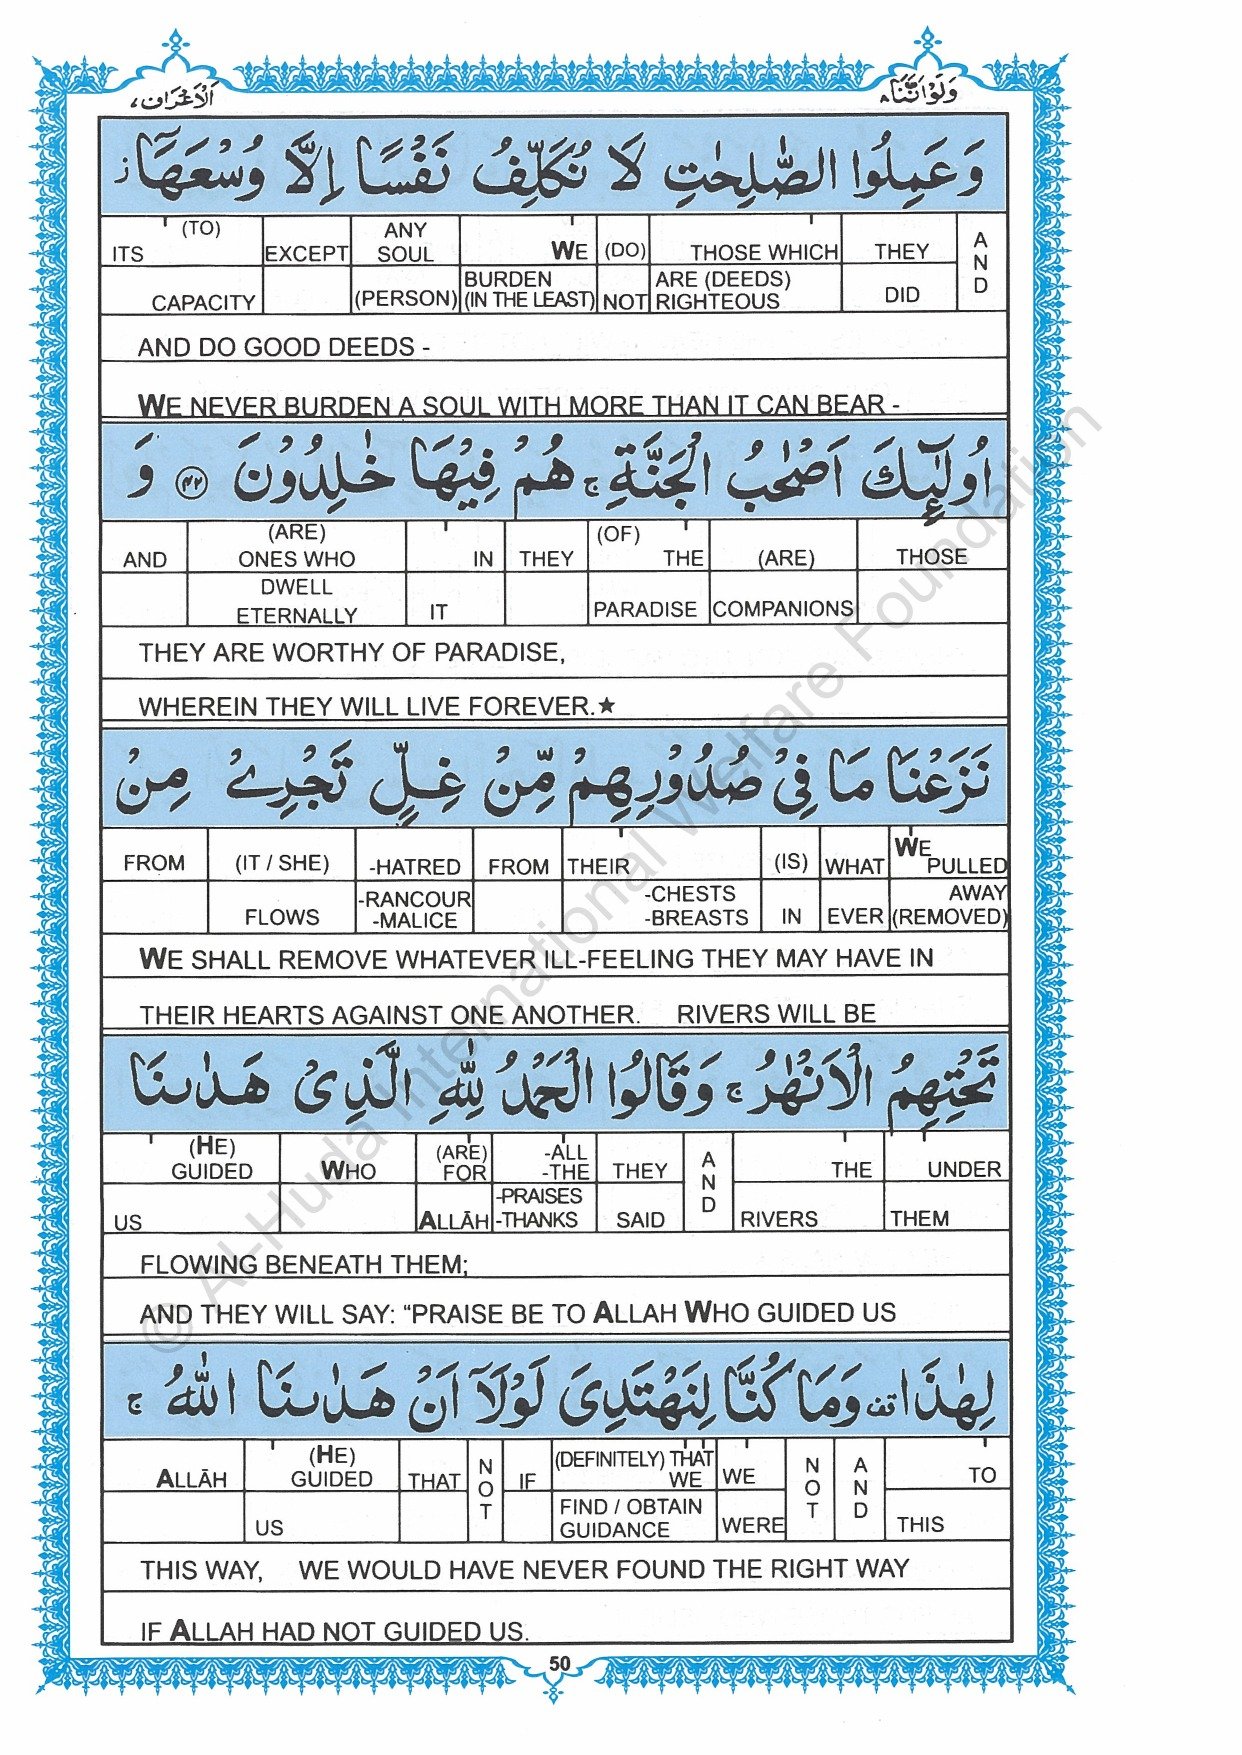 اَلْاَعْرَاف ٧
وَلَوْ اَنَّنَا ٨
وَعَمِلُوا الصّٰلِحٰتِ لَا نُكَلِّفُ نَفْسًا اِلَّا وُسْعَهَاۤ ز
ITS (TO) EXCEPT ANY SOUL WE (DO) THOSE WHICH THEY AND
CAPACITY (PERSON) BURDEN (IN THE LEAST) NOT ARE (DEEDS) RIGHTEOUS DID
AND DO GOOD DEEDS -
WE NEVER BURDEN A SOUL WITH MORE THAN IT CAN BEAR -
اُولٰٓئِكَ اَصْحٰبُ الْجَنَّةِ ج هُمْ فِيْهَا خٰلِدُوْنَ ٤٢ وَ
AND (ARE) ONES WHO IN THEY (OF) THE (ARE) THOSE
DWELL ETERNALLY IT PARADISE COMPANIONS
THEY ARE WORTHY OF PARADISE,
WHEREIN THEY WILL LIVE FOREVER.★
نَزَعْنَا مَا فِيْ صُدُوْرِهِمْ مِّنْ غِلٍّ تَجْرِيْ مِنْ
FROM (IT / SHE) -HATRED FROM THEIR (IS) WHAT WE PULLED
FLOWS -RANCOUR -MALICE -CHESTS -BREASTS IN EVER AWAY (REMOVED)
WE SHALL REMOVE WHATEVER ILL-FEELING THEY MAY HAVE IN
THEIR HEARTS AGAINST ONE ANOTHER. RIVERS WILL BE
تَحْتِهِمُ الْاَنْهٰرُ ج وَقَالُوا الْحَمْدُ لِلّٰهِ الَّذِيْ هَدٰىنَا
(HE) GUIDED WHO (ARE) FOR -ALL -THE THEY AND THE UNDER
US ALLĀH -PRAISES -THANKS SAID RIVERS THEM
FLOWING BENEATH THEM;
AND THEY WILL SAY: “PRAISE BE TO ALLAH WHO GUIDED US
لِهٰذَا قف وَمَا كُنَّا لِنَهْتَدِيَ لَوْلَاۤ اَنْ هَدٰىنَا اللّٰهُ ج
ALLĀH (HE) GUIDED THAT NOT IF (DEFINITELY) THAT WE WE NOT AND TO
US FIND / OBTAIN GUIDANCE WERE THIS
THIS WAY, WE WOULD HAVE NEVER FOUND THE RIGHT WAY
IF ALLAH HAD NOT GUIDED US.
50
© Al-Huda International Welfare Foundation